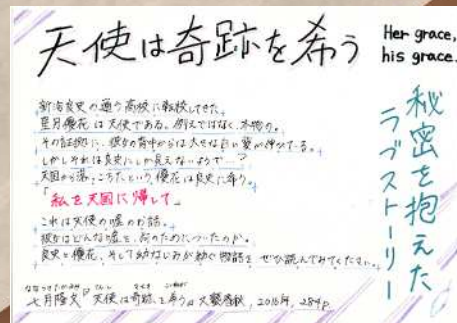 天使は奇跡を希う
Her grace,
his grace.
秘密を抱えた
ラブストーリー
新海良史の通う高校に転校してきた
星月優花は天使である。例えではなく、本物の。
その証拠に、彼女の背中からは大きな白い翼が伸びている。
しかしそれは良史にしか見えないようで…?
天国から落っこちたという優花は良史に希う。
「私を天国に帰して」
これは天使の嘘のお話。
彼女はどんな嘘を、何のためについたのか。
良史と優花、そして幼なじみが紡ぐ物語を ぜひ読んでみてください。
七月隆文『天使は奇跡を希う』文藝春秋, 2016年, 284p